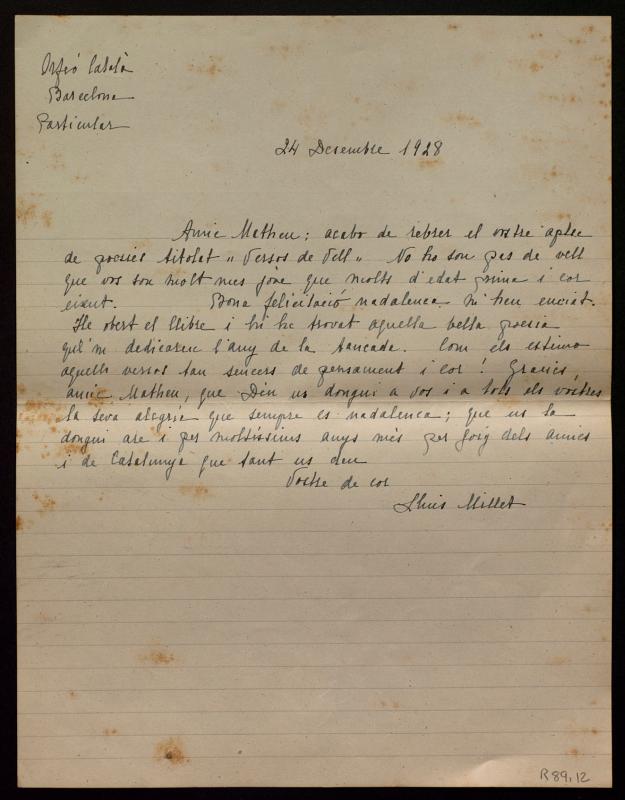 Orfeó Català
Barcelona
Particular
24 Desembre 1928
Amic Matheu; acabo de rebrer el vostre aplec
de poesies titolat „Versos de Vell„ No ho son pas de vell
que vos sou molt mes jove que molts d'edat prima i cor
eixut. Bona felicitació nadalenca m'heu enviat.
He obert el llibre i hi he trovat aquella bella poesia
qu'm dedicareu l'any de la tancada. Com els estimo
aquells versos tan sencers de pensament i cor! Gracies,
amic Matheu, que Déu us dongui a vos i a tots els vostres
la seva alegria que sempre es nadalenca; que us la
dongui are i per moltissims anys més per goig dels amics
i de Catalunya que tant us deu
Vostre de cor
Lluis Millet
R 89,12